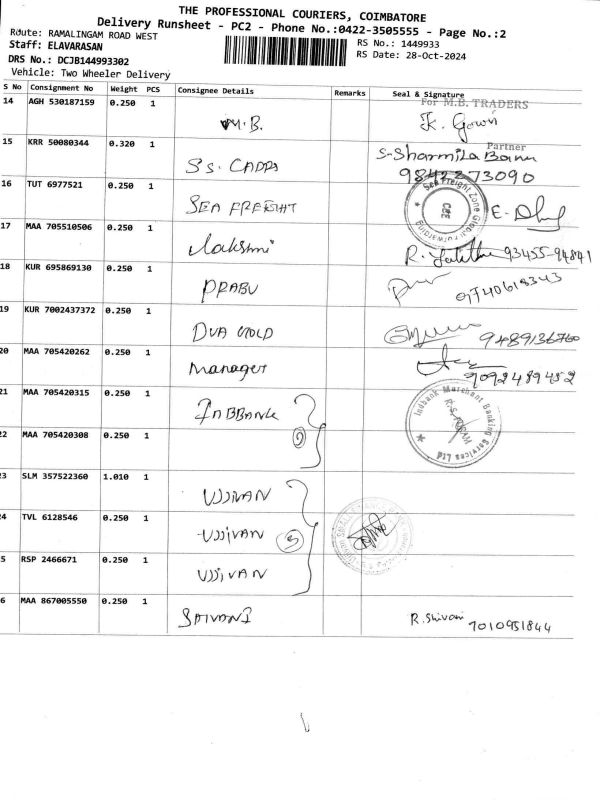 THE PROFESSIONAL COURIERS, COIMBATORE
Delivery Runsheet - PC2 - Phone No.:0422-3505555 - Page No.:2
Route: RAMALINGAM ROAD WEST
Staff: ELAVARASAN
RS No.: 1449933
DRS No.: DCJB144993302
RS Date: 28-Oct-2024
Vehicle: Two Wheeler Delivery
S No Consignment No Weight PCS Consignee Details Remarks Seal & Signature
14 AGH 530187159 0.250 1 M.B. For M.B. TRADERS
K. Gowri
Partner
15 KRR 50080344 0.320 1 S-Sharmila Banu
9842273090
16 TUT 6977521 0.250 1 SEA FREIGHT Sea Freight Zone Global Forwarding CBE
17 MAA 705510506 0.250 1 Lakshmi R. 93455-94841
18 KUR 695869130 0.250 1 PRABU
19 KUR 7002437372 0.250 1 DVA GOLD 9489136760
20 MAA 705420262 0.250 1 Manager 9092489452
21 MAA 705420315 0.250 1 INDBANK Indbank Merchant Banking Services Ltd
22 MAA 705420308 0.250 1
23 SLM 357522360 1.010 1 UJJIVAN
24 TVL 6128546 0.250 1 UJJIVAN 3
25 RSP 2466671 0.250 1 UJJIVAN
26 MAA 867005550 0.250 1 SAIVANI R. Shivani 7010951844